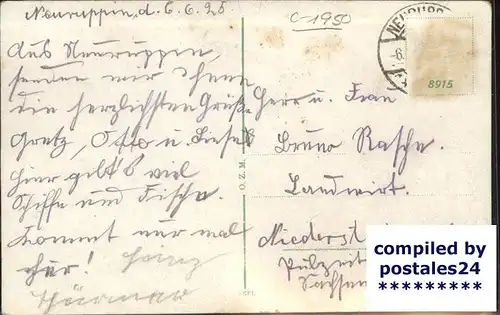 Neuruppin, d. 6.6.25.
C-1950
NEURUPP
-6.
8915
Aus Neuruppin,
senden wir Ihnen
die herzlichsten Grüße
Gretz, Otto u. Liesel
Hier gibt's viel
Schiffe und Fische.
Kommt nur mal
her! Heinz
O.Z.M.
Herr u. Frau
Bruno Rasche.
Landwirt.
Niederst
Sachsen
compiled by
postales24
*********